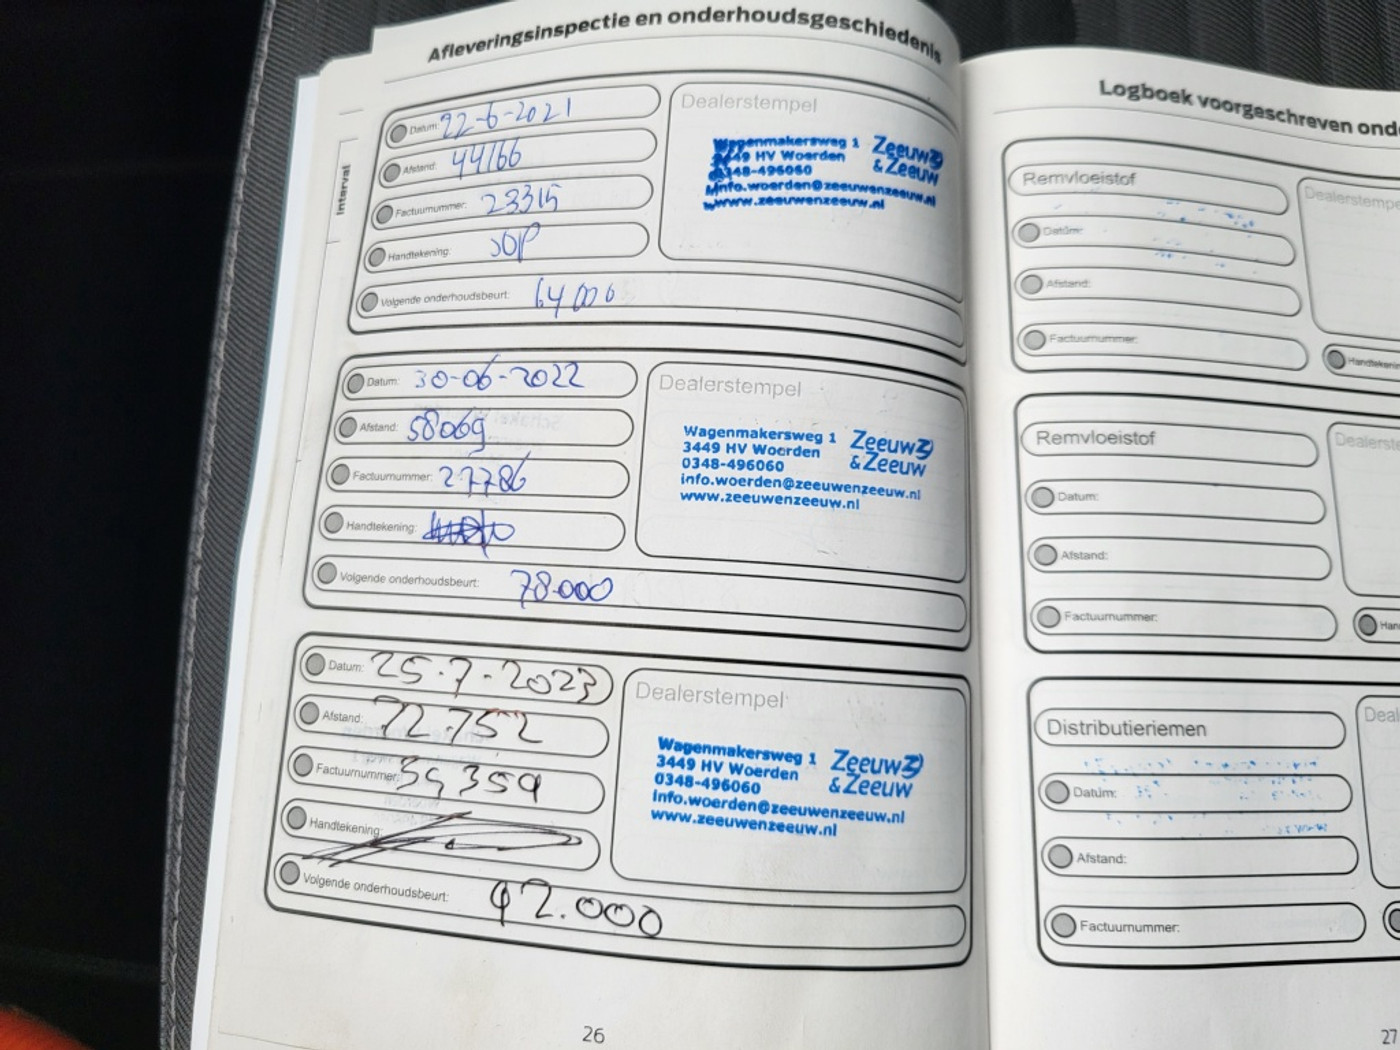 Afleveringsinspectie en onderhoudsgeschiedenis
Interval
Datum: 22-6-2021
Afstand: 44166
Factuurnummer: 23315
Handtekening:
Volgende onderhoudsbeurt: 64000
Dealerstempel
Wagenmakersweg 1
3449 HV Woerden
0348-496060
info.woerden@zeeuwenzeeuw.nl
www.zeeuwenzeeuw.nl
Zeeuw
&Zeeuw
Datum: 30-06-2022
Afstand: 58069
Factuurnummer: 27786
Handtekening:
Volgende onderhoudsbeurt: 78.000
Dealerstempel
Wagenmakersweg 1
3449 HV Woerden
0348-496060
info.woerden@zeeuwenzeeuw.nl
www.zeeuwenzeeuw.nl
Zeeuw
&Zeeuw
Datum: 25-7-2023
Afstand: 72.752
Factuurnummer: 39359
Handtekening:
Volgende onderhoudsbeurt: 92.000
Dealerstempel
Wagenmakersweg 1
3449 HV Woerden
0348-496060
info.woerden@zeeuwenzeeuw.nl
www.zeeuwenzeeuw.nl
Zeeuw
&Zeeuw
26
Logboek voorgeschreven ond
Remvloeistof
Datum:
Afstand:
Factuurnummer:
Dealerstempe
Handtekenin
Remvloeistof
Datum:
Afstand:
Factuurnummer:
Dealerste
Han
Distributieriemen
Datum:
Afstand:
Factuurnummer:
Deal
27